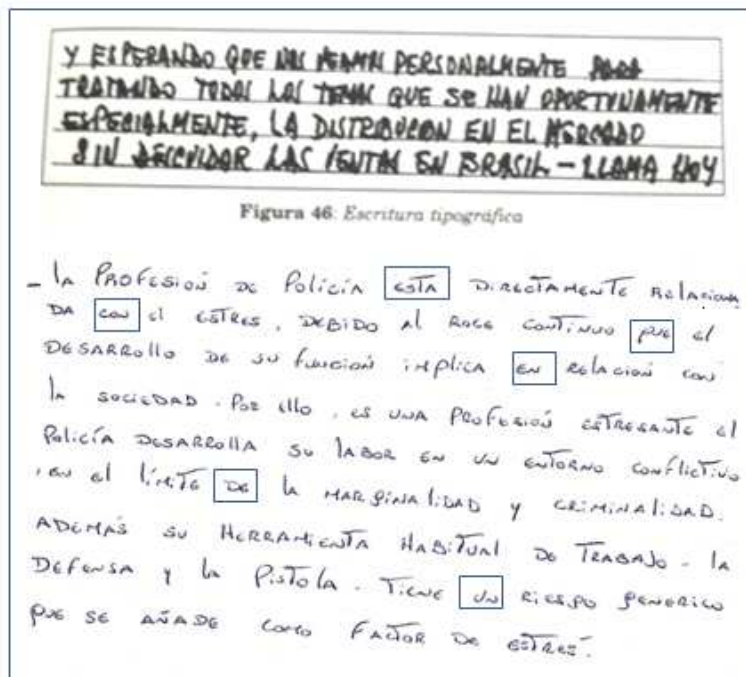 Y ESPERANDO QUE NOS VEAMOS PERSONALMENTE PARA
TRATANDO TODOS LOS TEMAS QUE SE HAN OPORTUNAMENTE
ESPECIALMENTE, LA DISTRIBUCION EN EL MERCADO
SIN DESCUIDAR LAS VENTAS EN BRASIL - LLAMA HOY
Figura 46: Escritura tipográfica
- lA PROFESIÓN DE POlICÍA ESTA DIRECTAMENTE RElACIONA
DA CON El ESTRES, DEBIDO Al ROCE CONTINUO QUE El
DESARROllO DE SU FUNCIÓN IMPLICA EN RElACION CON
lA SOCIEDAD. POR Ello, ES UNA PROFESIÓN ESTRESANTE El
POlICÍA DESARROllA SU lABOR EN UN ENTORNO CONFLICTIVO
, EN El lÍMITE DE lA MARGINAlIDAD Y CRIMINAlIDAD.
ADEMÁS SU HERRAMIENTA HABITUAL DE TRABAJO - lA
DEFENSA Y lA PISTOlA. TIENE UN RIESGO GENERICO
QUE SE AÑADE COMO FACTOR DE ESTRES.